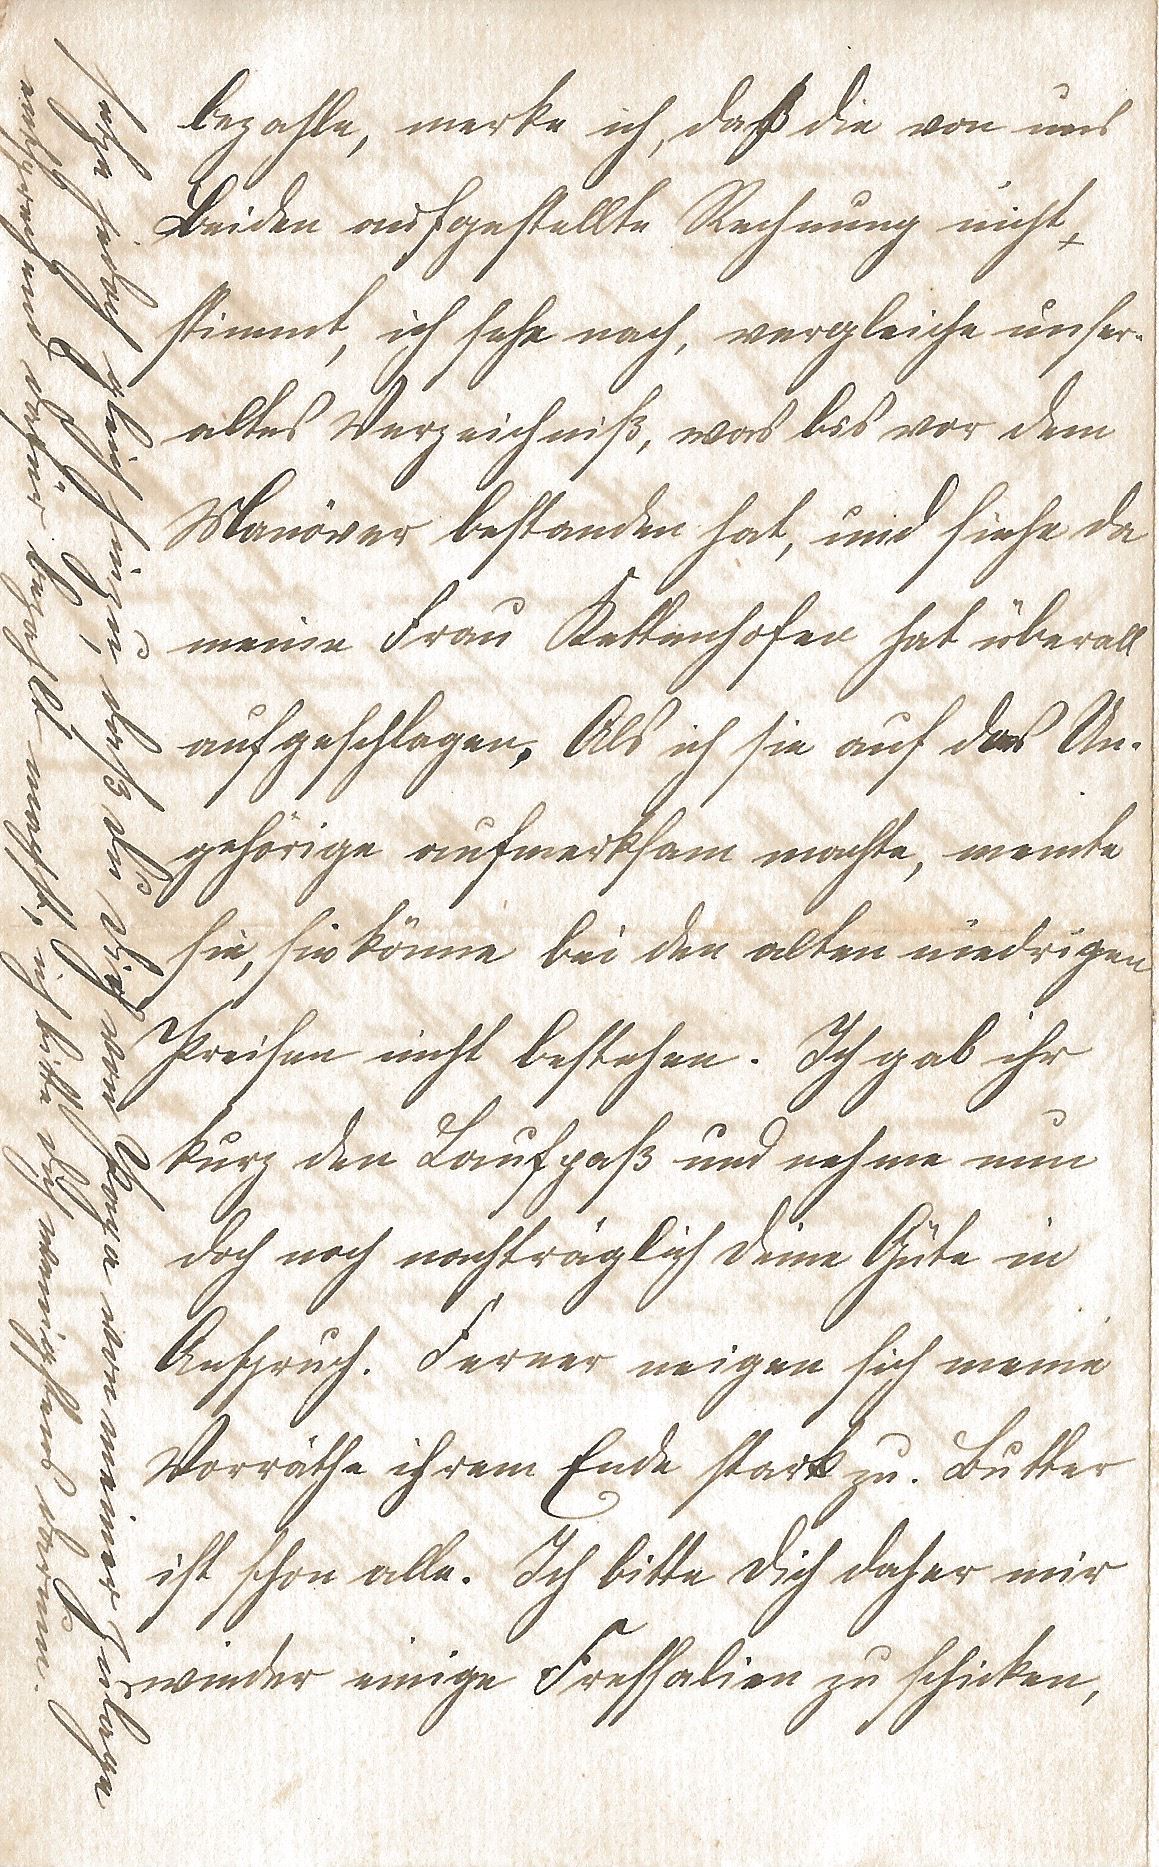 bezahle, merke ich, daß die von uns
Beiden aufgestellte Rechnung nicht
stimmt, ich sehe nach, vergleiche unser
altes Verzeichniß, was bis vor dem
Manöver bestanden hat, und siehe da
meine Frau Kettenhofen hat überall
aufgeschlagen. Als ich sie auf das Un-
gehörige aufmerksam machte, meinte
sie, sie könne bei den alten niedrigen
Preisen nicht bestehen. Ich gab ihr
kurz den Laufpaß und nehme nun
doch noch nachträglich Deine Güte in
Anspruch. Ferner neigen sich meine
Vorräthe ihrem Ende stark zu. Butter
ist schon alle. Ich bitte Dich daher mir
wieder einige Fressalien zu schicken,
setze jedoch gleich hinzu, daß Du Dich von Papa von meiner Zulage
dafür bezahlt machst, ich bitte Dich wenigstens darum.